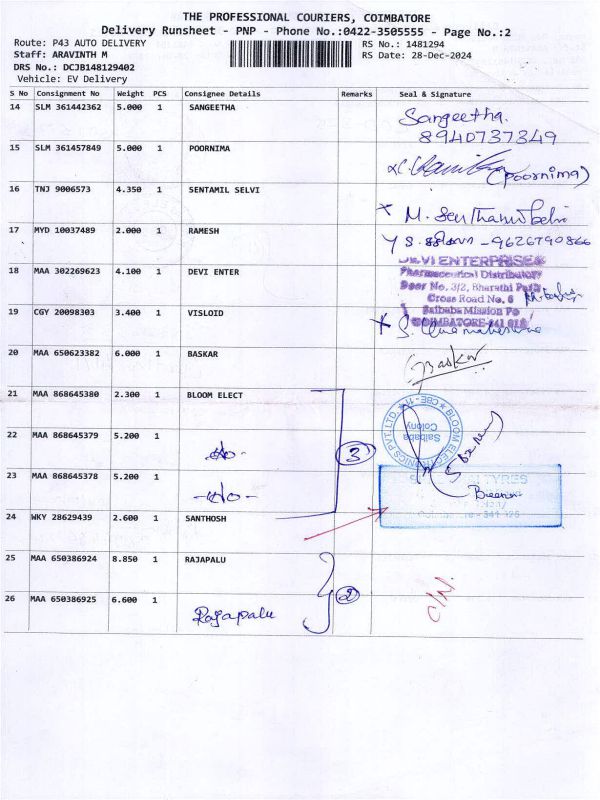 THE PROFESSIONAL COURIERS, COIMBATORE
Delivery Runsheet - PNP - Phone No.:0422-3505555 - Page No.:2
Route: P43 AUTO DELIVERY
Staff: ARAVINTH M
DRS No.: DCJB148129402
Vehicle: EV Delivery
RS No.: 1481294
RS Date: 28-Dec-2024
S No Consignment No Weight PCS Consignee Details Remarks Seal & Signature
14 SLM 361442362 5.000 1 SANGEETHA Sangeetha.
8940737349
15 SLM 361457849 5.000 1 POORNIMA (Poornima)
16 TNJ 9006573 4.350 1 SENTAMIL SELVI M.
17 MYD 10037489 2.000 1 RAMESH - 9626790866
18 MAA 302269623 4.100 1 DEVI ENTER DEVI ENTERPRISES
Pharmaceutical Distributors
Door No. 3/2, Bharathi Park
Cross Road No. 6
Saibaba Mission Po
COIMBATORE-641 018
19 CGY 20098303 3.400 1 VISLOID
20 MAA 650623382 6.000 1 BASKAR Baskar
21 MAA 868645380 2.300 1 BLOOM ELECT BLOOM ELECTRONICS PVT. LTD. CBE-11
Saibaba
Colony
22 MAA 868645379 5.200 1 -do- 3
23 MAA 868645378 5.200 1 -do- TYRES
24 WKY 28629439 2.600 1 SANTHOSH
25 MAA 650386924 8.850 1 RAJAPALU
26 MAA 650386925 6.600 1 Rajapalu 2 C/N